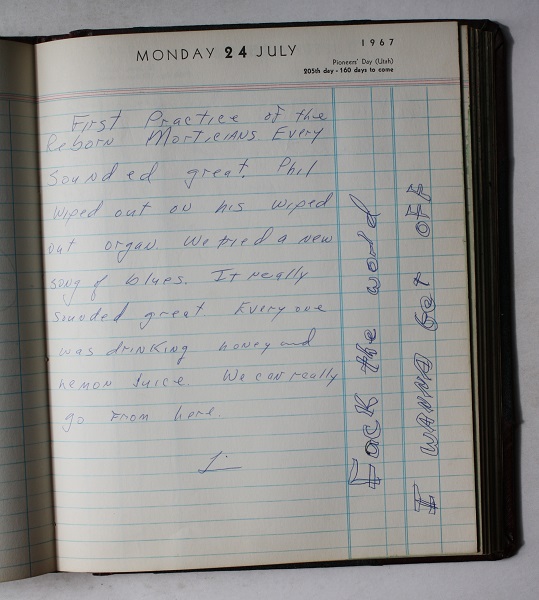 MONDAY 24 JULY
1967
Pioneers' Day (Utah)
205th day - 160 days to come
First Practice of the
Reborn Morticians. Every
sounded great. Phil
wiped out on his wiped
out organ. We tried a new
song of blues. It really
sounded great Everyone
was drinking honey and
Lemon Juice. We can really
go From here.
Fuck the world
I WANNA Get off